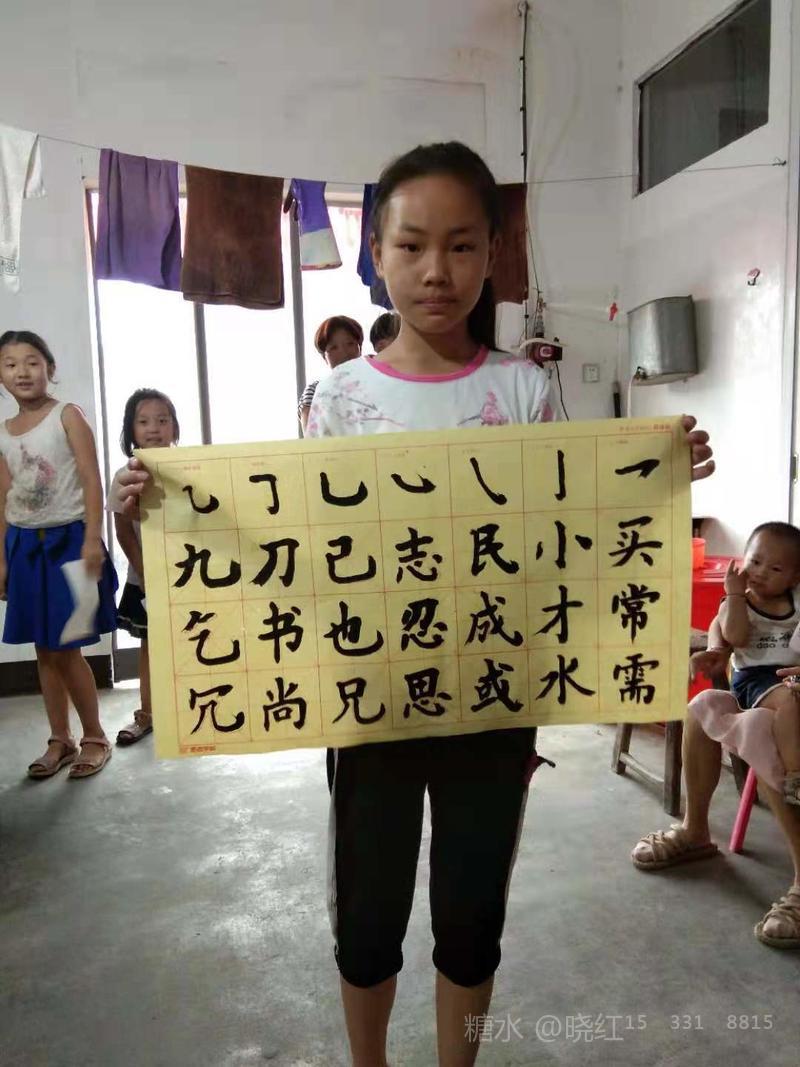 乛买常需
亅小才水
㇂民成或
㇃志忍思
乚已也兄
𠃌刀书尚
乙九乞冗
糖水 @晓红15 331 8815